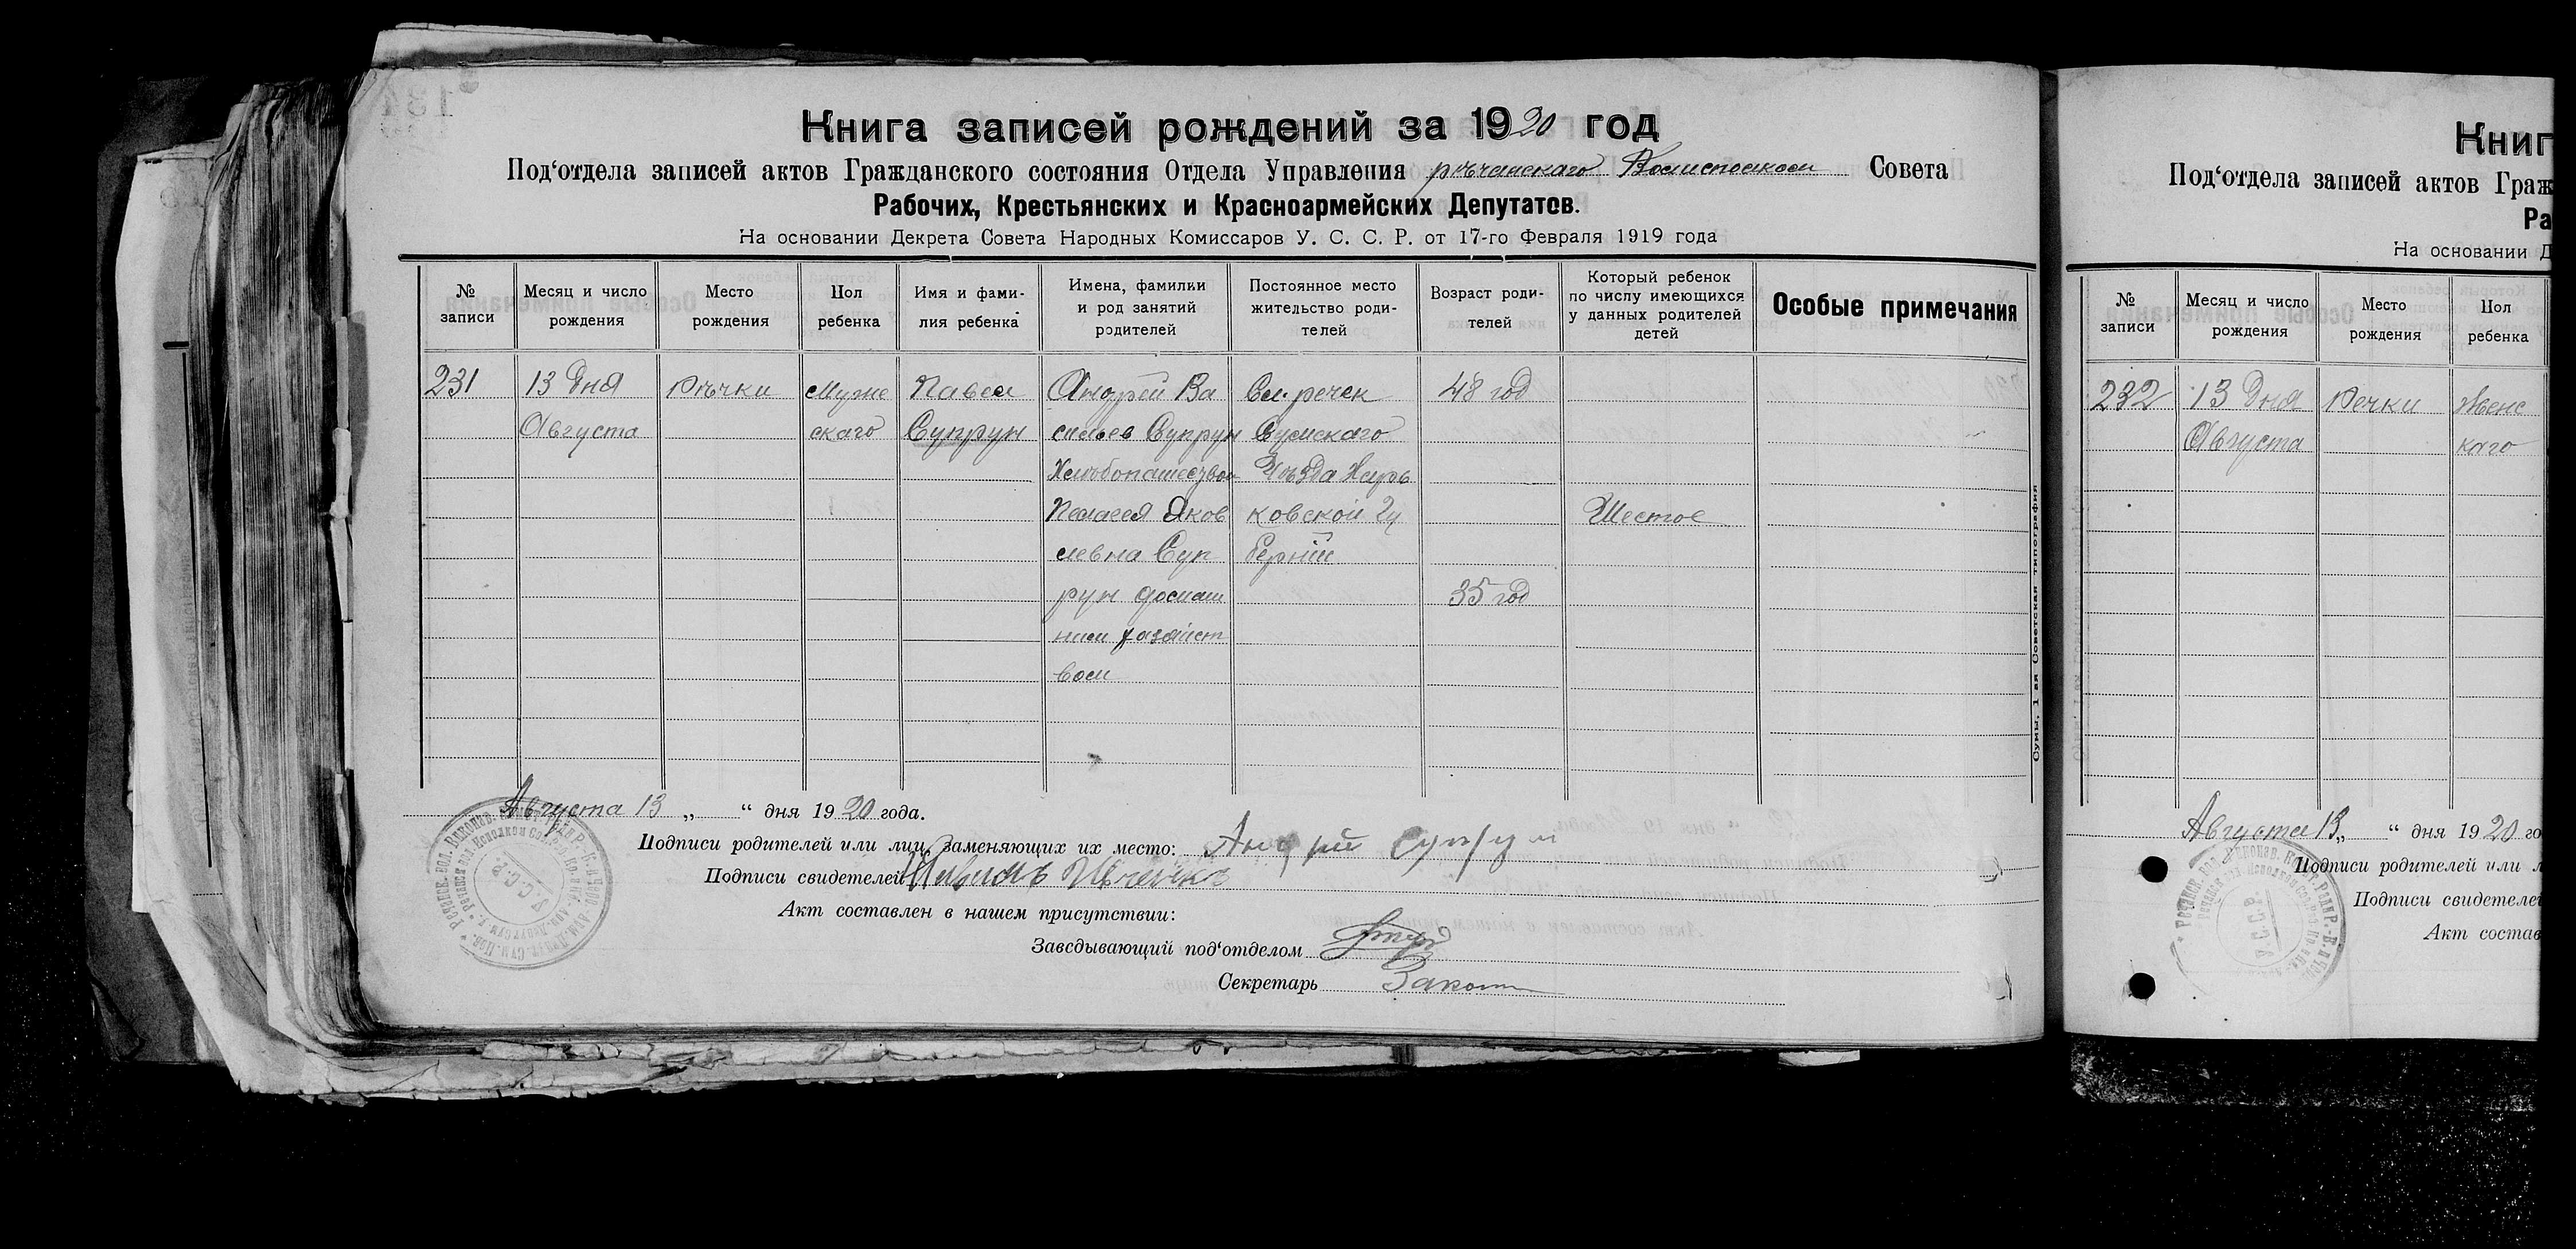 Книга записей рождений за 1920 год
Под‘отдела записей актов Гражданского состояния Отдела Управления рѣчанскаго Волисполкома Совета
Рабочих, Крестьянских и Красноармейских Депутатов.
На основании Декрета Совета Народных Комиссаров У. С. С. Р. от 17-го Февраля 1919 года
№ записи
Месяц и число рождения
Место рождения
Пол ребенка
Имя и фами-
лия ребенка
Имена, фамилии
и род занятий
родителей
Постоянное место
жительство роди-
телей
Возраст роди-
телей
Который ребенок
по числу имеющихся
у данных родителей
детей
Особые примечания
231 13 дня Рѣчки Муже Павел Андрей Ва Сл. речек 48 год
Августа скаго Супрун сильев Супрун Сумскаго
Хлѣбопашеством Уѣзда Харь
Пелагея Яков ковской Гу Шестое
левна Суп берніи
рун домаш 35 год
ним хазяйст
вом
Сумы, 1-ая Советская типография
Августа 13 „ “ дня 1920 года.
Подписи родителей или лиц, заменяющих их место: Андрей Супрун
Подписи свидетелей
Акт составлен в нашем присутствии:
Заведывающий под‘отделом
Секретарь
Книг
Под‘отдела записей актов Граж
Ра
На основании Д
№ записи
Месяц и число рождения
Место рождения
Пол ребенка
232 13 дня Речки Женс
Августа каго
Августа 13 „ “ дня 1920 го
Подписи родителей или л
Подписи свидетелей
Акт состав